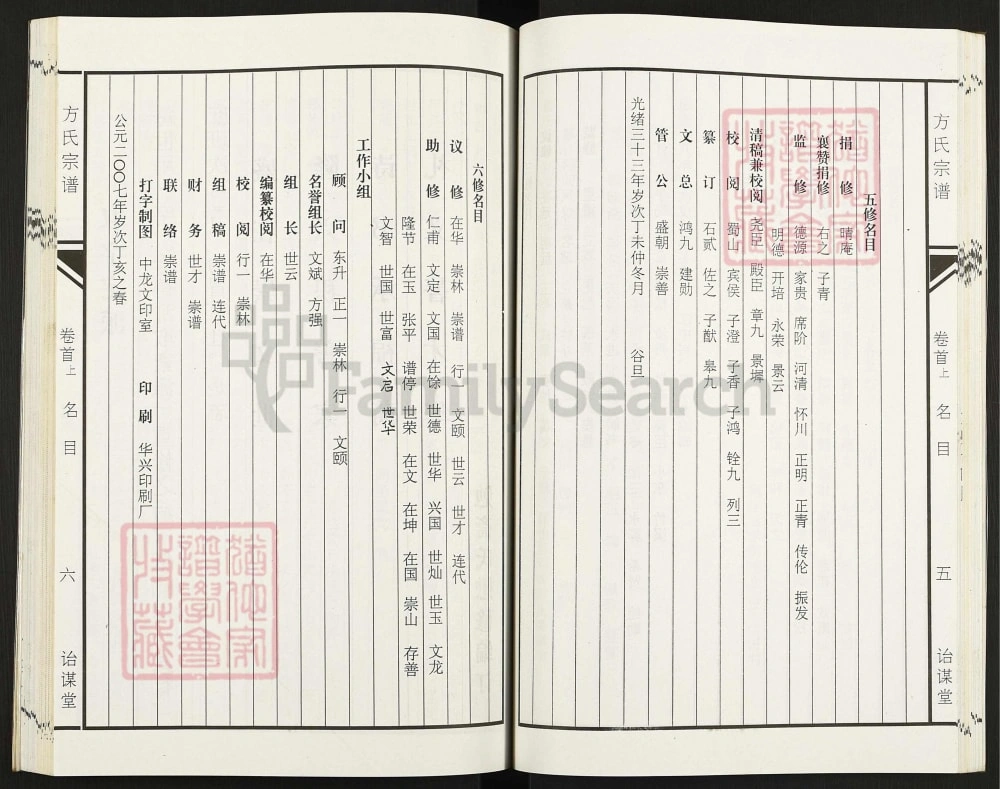 方氏宗谱
卷首上 名目
五
诒谋堂
五修名目
捐修 晴庵
襄赞捐修 右之 子青
监修 德源 家贵 席阶 河清 怀川 正明 正青 传伦 振发
明德 开培 永荣 景云
清稿兼校阅 尧臣 殿臣 章九 景墀
校阅 蜀山 宾侯 子澄 子香 子鸿 铨九 列三
纂订 石贰 佐之 子猷 皋九
文总 鸿九 建勋
管公 盛朝 崇善
光绪三十三年岁次丁未仲冬月 谷旦
六修名目
议修 在华 崇林 崇谱 行一 文颐 世云 世才 连代
助修 仁甫 文定 文国 在馀 世德 世华 兴国 世灿 世玉 文龙
隆节 在玉 张平 谱停 世荣 在文 在坤 在国 崇山 存善
文智 世国 世富 文启 世华
工作小组
顾问 东升 正一 崇林 行一 文颐
名誉组长 文斌 方强
组长 世云
编纂校阅 在华
校阅 行一 崇林
组稿 崇谱 连代
财务 世才 崇谱
联络 崇谱
打字制图 中龙文印室 印刷 华兴印刷厂
公元二〇〇七年岁次丁亥之春
方氏宗谱
卷首上 名目
六
诒谋堂
FamilySearch
猶他家譜學會特藏
猶他家譜學會特藏